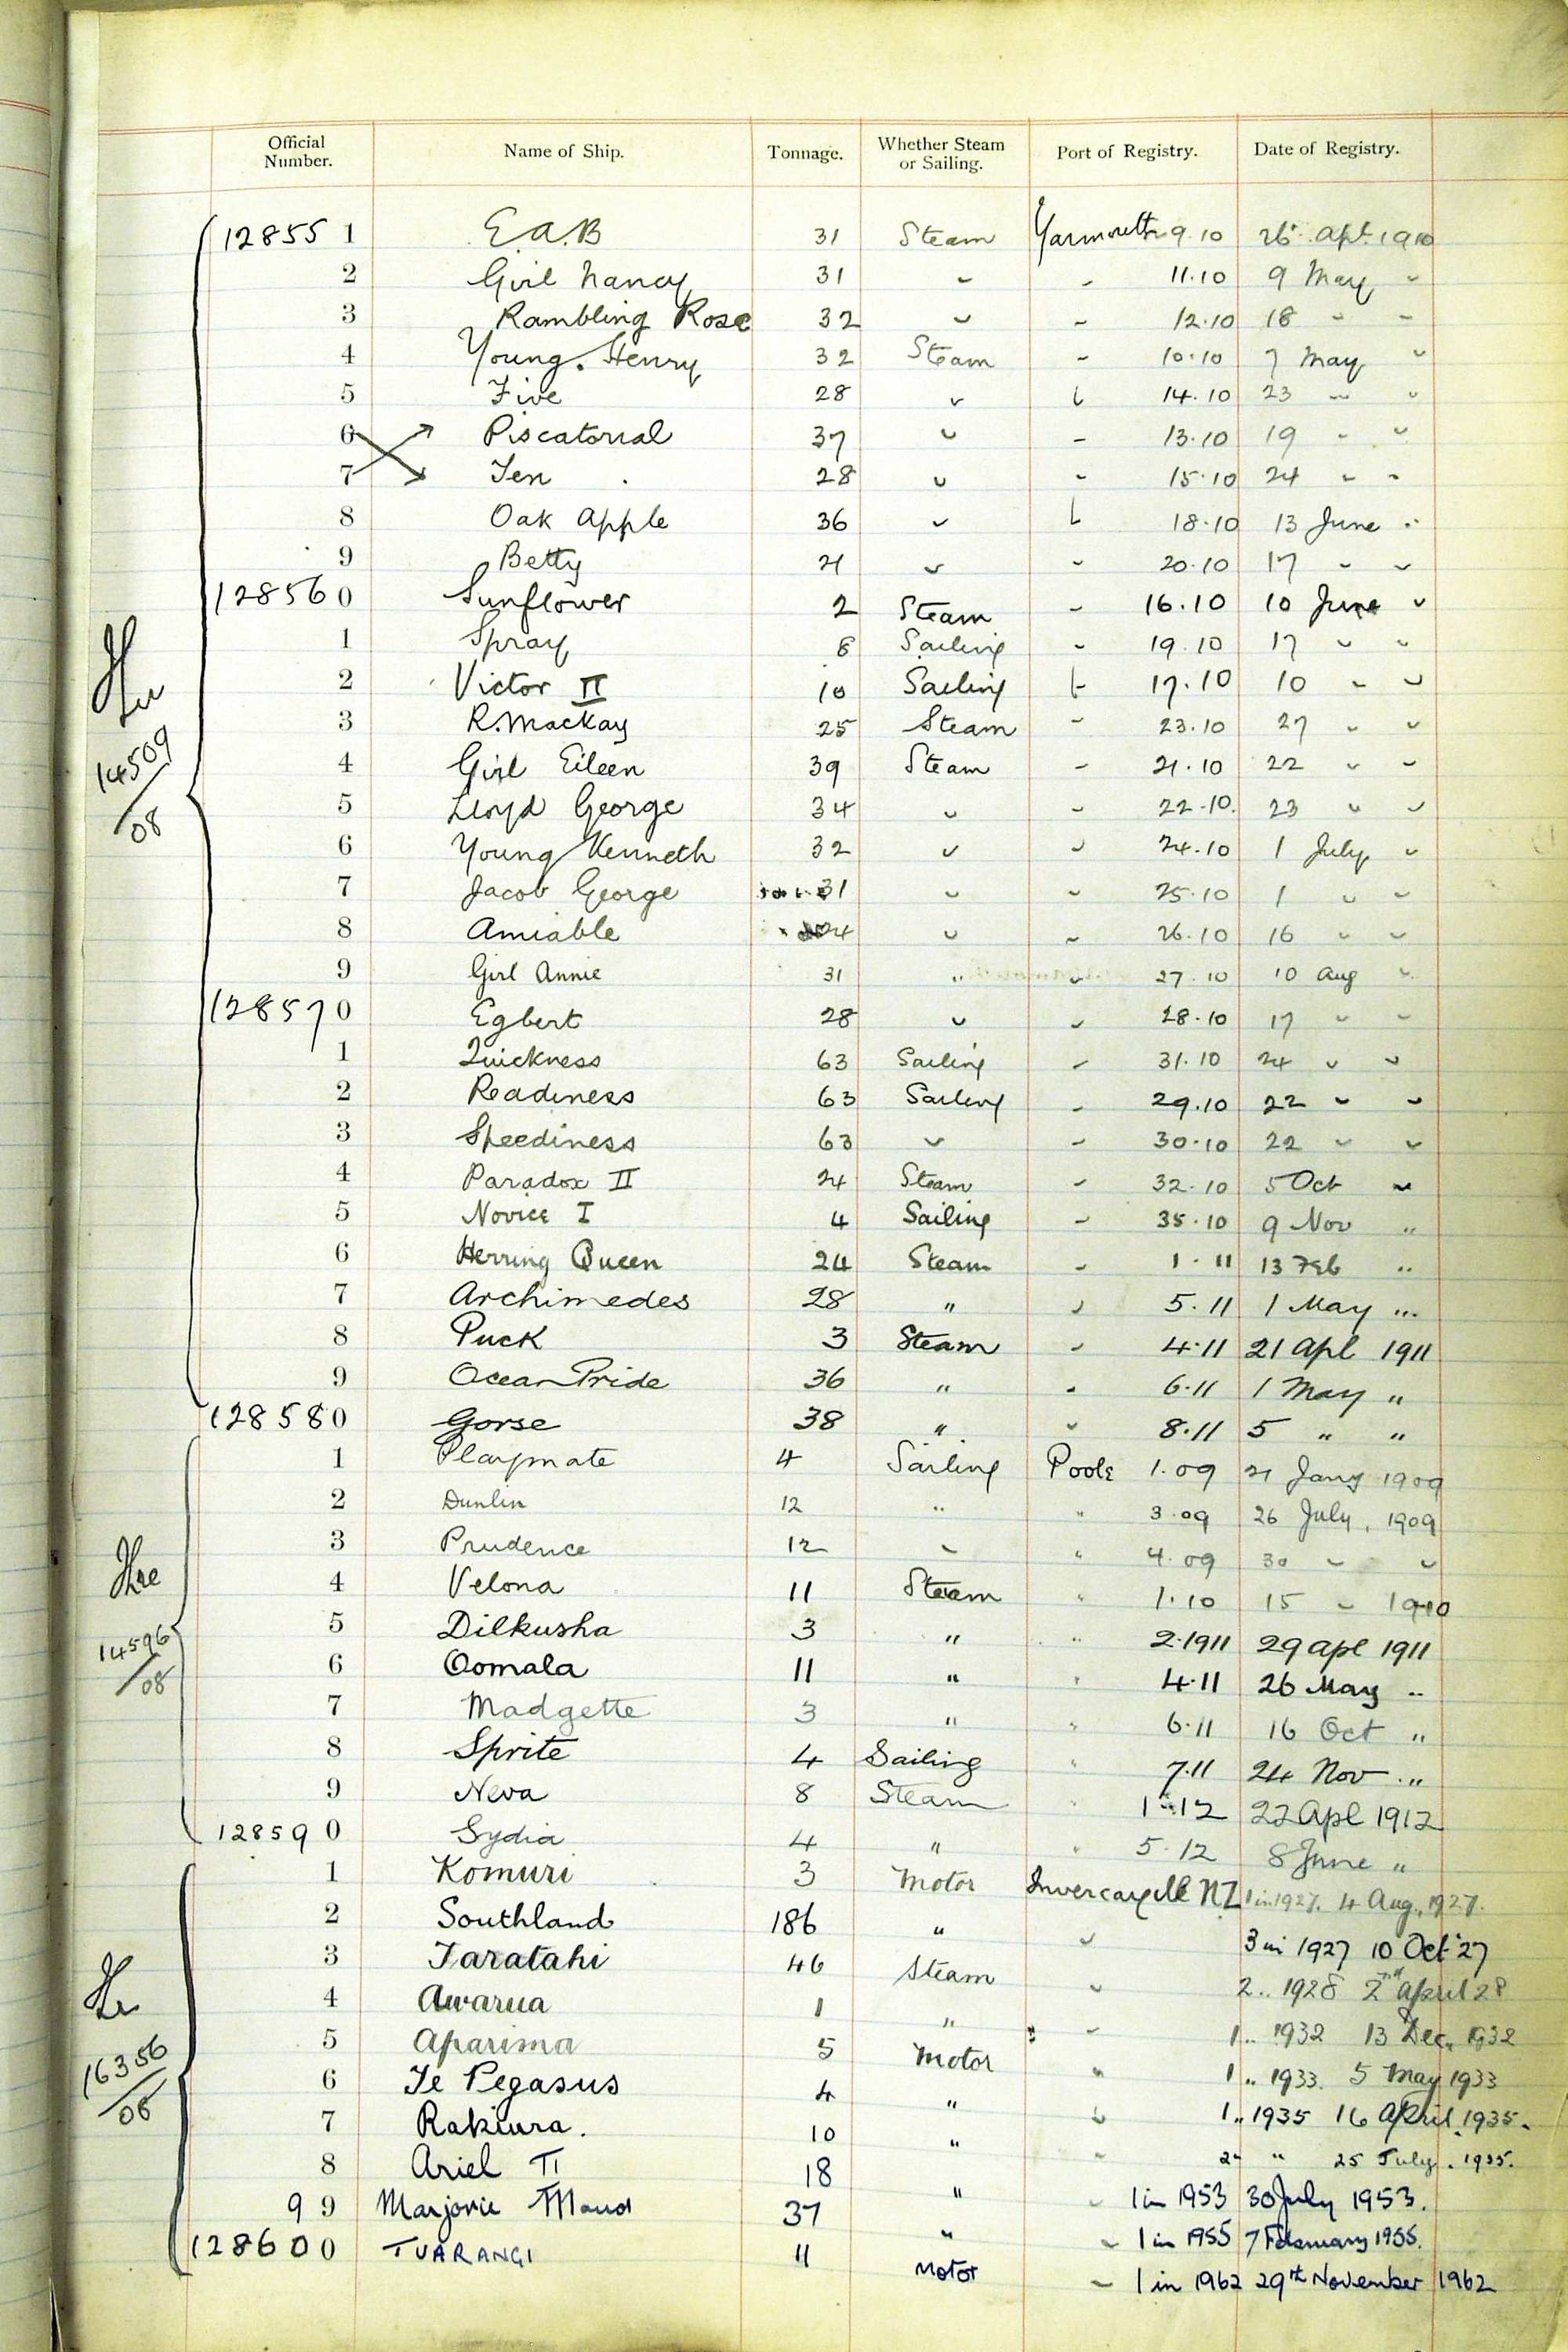 Official Number. Name of Ship. Tonnage. Whether Steam or Sailing. Port of Registry. Date of Registry.
12855 1 E.A.B 31 Steam Yarmouth 9.10 26 Apl. 1910
2 Girl Nancy 31 " " 11.10 9 May "
3 Rambling Rose 32 " " 12.10 18 " "
4 Young Henry 32 Steam " 10.10 7 May "
5 Five 28 " " 14.10 23 " "
6 Piscatorial 37 " " 13.10 19 " "
7 Ten 28 " " 15.10 24 " "
8 Oak Apple 36 " " 18.10 13 June "
9 Betty 21 " " 20.10 17 " "
12856 0 Sunflower 2 Steam " 16.10 10 June "
1 Spray 8 Sailing " 19.10 17 " "
2 Victor II 10 Sailing " 17.10 10 " "
3 R. Mackay 25 Steam " 23.10 27 " "
4 Girl Eileen 39 Steam " 21.10 22 " "
5 Lloyd George 34 " " 22.10. 23 " "
6 Young Kenneth 32 " " 24.10 1 July "
7 Jacob George 31 " " 25.10 1 " "
8 Amiable 24 " " 26.10 16 " "
9 Girl Annie 31 " " 27.10 10 Aug "
12857 0 Egbert 28 " " 28.10 17 " "
1 Quickness 63 Sailing " 31.10 24 " "
2 Readiness 63 Sailing " 29.10 22 " "
3 Speediness 63 " " 30.10 22 " "
4 Paradox II 24 Steam " 32.10 5 Oct "
5 Novice I 4 Sailing " 35.10 9 Nov "
6 Herring Queen 24 Steam " 1.11 13 Feb "
7 Archimedes 28 " " 5.11 1 May "
8 Puck 3 Steam " 4.11 21 Apl 1911
9 Ocean Pride 36 " " 6.11 1 May "
12858 0 Gorse 38 " " 8.11 5 " "
1 Playmate 4 Sailing Poole 1.09 21 Jany 1909
2 Dunlin 12 " " 3.09 26 July, 1909
3 Prudence 12 " " 4.09 30 " "
4 Velona 11 Steam " 1.10 15 " 1910
5 Dilkusha 3 " " 2.1911 29 Apl 1911
6 Oomala 11 " " 4.11 26 May "
7 Madgette 3 " " 6.11 16 Oct "
8 Sprite 4 Sailing " 7.11 24 Nov "
9 Neva 8 Steam " 1.12 22 Apl 1912
12859 0 Lydia 4 " " 5.12 8 June "
1 Komuri 3 Motor Invercargill NZ 1 in 1927. 4 Aug., 1927.
2 Southland 186 " " 3 in 1927 10 Oct '27
3 Taratahi 46 Steam " 2 " 1928 2nd April 28
4 Awarua 1 " " 1 " 1932 13 Dec. 1932
5 Aparima 5 Motor " 1 " 1933. 5 May 1933
6 Te Pegasus 4 " " 1 " 1935 16 April, 1935.
7 Rakiura. 10 " " 2 " " 25 July. 1935.
8 Ariel II 18 " " 1 in 1953 30 July 1953.
9 9 Marjorie Maud 37 " " 1 in 1955 7 February 1955.
12860 0 TUARANGI 11 Motor " 1 in 1962 29th November 1962
14509/08
14596/08
16356/08